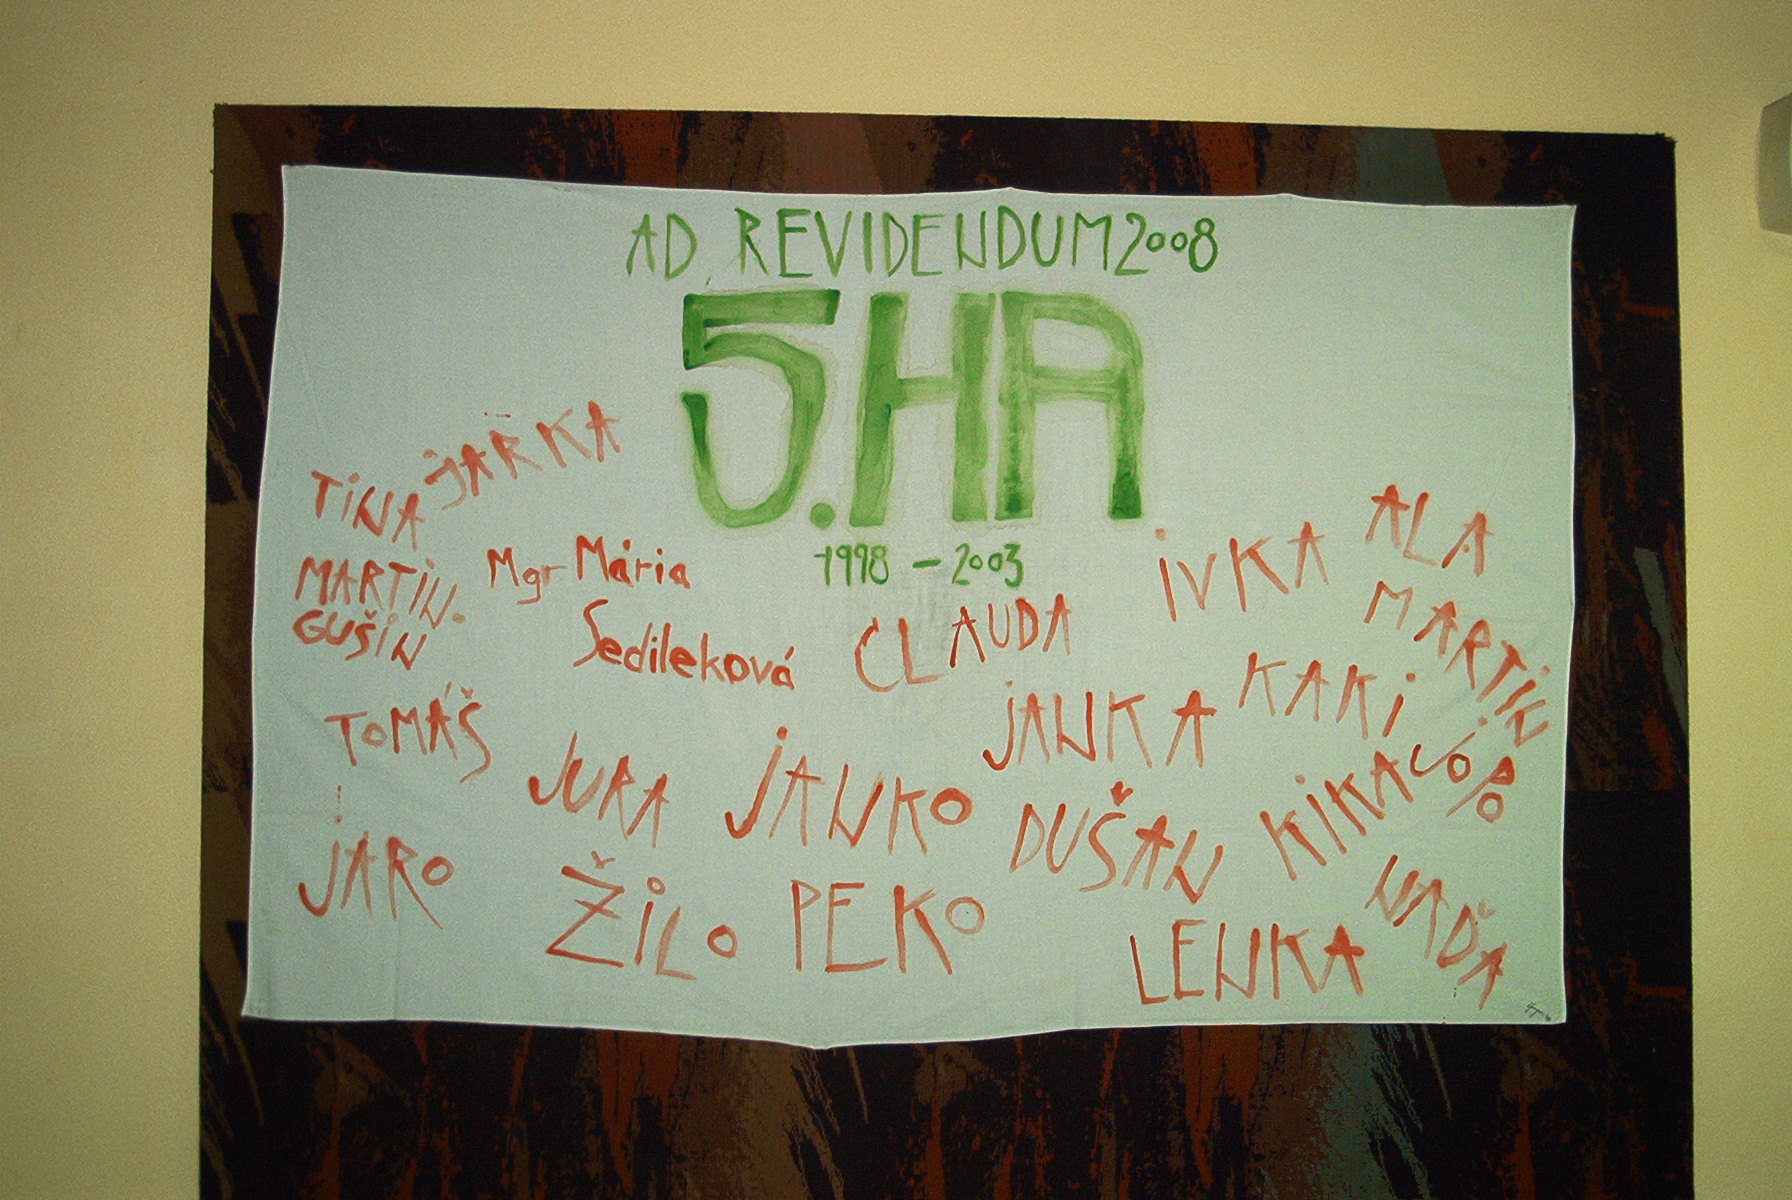 AD REVIDENDUM 2008
5.HA
1998 - 2003
JARKA
TINA
MARTIN.
GUŠIN
Mgr Mária
Sedileková
CLAUDA
IVKA
ALA
MARTIN
TOMÁŠ
JURA
JANKO
JANKA
KAKI
JOPO
JARO
ŽILO
PEKO
DUŠAN
KIKA
LENKA
NAĎA